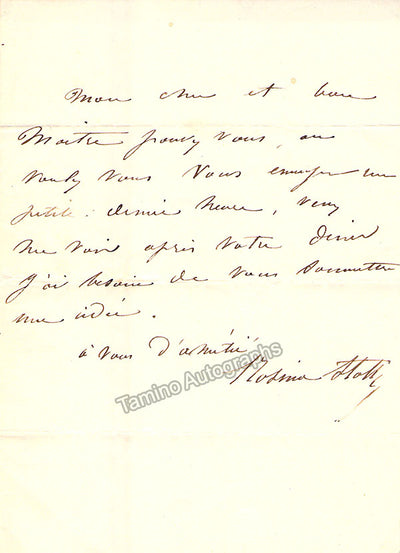 Mon cher et bon
Maitre pouvez vous, ou
voulez vous vous ennuyer une
petite demie heure, venez
me voir après votre diner
j'ai besoin de vous soumettre
une idée.
à vous d'amitié
Rosine Stoltz
Tamino Autographs